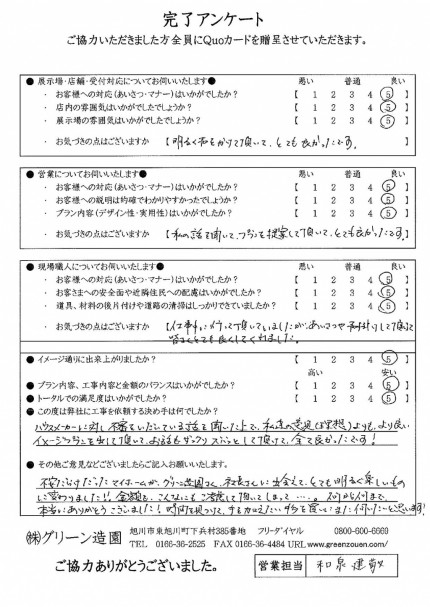 完了アンケート
ご協力いただきました方全員にQuoカードを贈呈させていただきます。
● 展示場・店舗・受付対応についてお伺いいたします● 悪い 普通 良い
・ お客様への対応(あいさつ・マナー)はいかがでしたか? 【 1 2 3 4 5 】
・ 店内の雰囲気はいかがでしたでしょうか? 【 1 2 3 4 5 】
・ 展示場の雰囲気はいかがでしたか? 【 1 2 3 4 5 】
・ お気づきの点はございますか 【 明るく 頂いて、とても良かったです。】
● 営業についてお伺いいたします● 悪い 普通 良い
・ お客様への対応(あいさつ・マナー)はいかがでしたか? 【 1 2 3 4 5 】
・ お客様への説明は的確でわかりやすかったでしょうか? 【 1 2 3 4 5 】
・ プラン内容(デザイン性・実用性)はいかがでしたか? 【 1 2 3 4 5 】
・ お気づきの点はございますか 【 私の話を聞いて、 提案して頂いて、とても良かったです。】
● 現場職人についてお伺いいたします● 悪い 普通 良い
・ お客様への対応(あいさつ・マナー)はいかがでしたか? 【 1 2 3 4 5 】
・ お客さまへの安全面や近隣住民への配慮はいかがでしたか? 【 1 2 3 4 5 】
・ 道具、材料の後片付けや道路の清掃はしっかりできていましたか? 【 1 2 3 4 5 】
・ お気づきの点はございますか 【 仕事 頂いて いましたが、あいさつや 頂いて
皆さんとても良くしてくれました。 】
● イメージ通りに出来上がりましたか? 【 1 2 3 4 5 】
高い 安い
● プラン内容、工事内容と金額のバランスはいかがでしたか? 【 1 2 3 4 5 】
● トータルでの満足度はいかがでしたか? 【 1 2 3 4 5 】
● この度は弊社に工事を依頼する決め手は何でしたか?
ハウスメーカーに対し、不 話を聞いた上で、私達の 理想 よりも、より良い
イメージ を出して頂いて、お話も スッとして頂けて、全て良かったです!
● その他ご意見などございましたらご記入お願いいたします。
不 だらけだったマイホームが、グリーン造園さん、和泉さんに出会えて、とても明るく楽しいもの
に変わりました!! 金額も、こんなにも して頂いてしまって……。何から何まで、
本当にありがとうございました!
㈱グリーン造園 旭川市東旭川町下兵村385番地 フリーダイヤル 0800-600-6669
TEL 0166-36-2525 FAX 0166-36-4484 URL www.greenzouen.com/
ご協力ありがとうございました。 営業担当 和泉 建